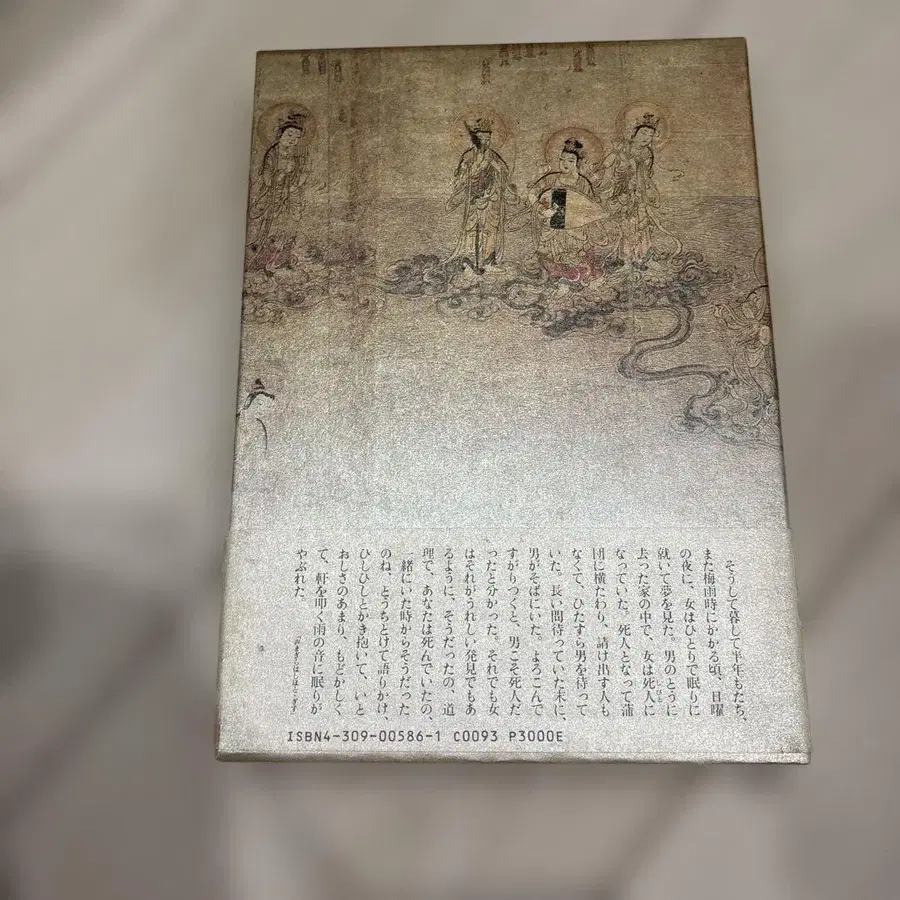 そうして暮して半年もたち、
また梅雨時にかかる頃、日曜
の夜に、女はひとりで眠りに
就いて夢を見た。男のとうに
去った家の中で、女は死人に
なっていた。死人となって蒲
団に横たわり、請け出す人も
なくて、ひたすら男を待って
いた。長い間待っていた末に、
男がそばにいた。よろこんで
すがりつくと、男こそ死人だ
ったと分かった。それでも女
はそれがうれしい発見でもあ
るように、そうだったの、道
理で、あなたは死んでいたの、
一緒にいた時からそうだった
のね、とうちとけて語りかけ、
ひしひしとかき抱いて、いと
おしさのあまり、もどかしく
て、軒を叩く雨の音に眠りが
やぶれた。
ISBN4-309-00586-1 C0093 P3000E